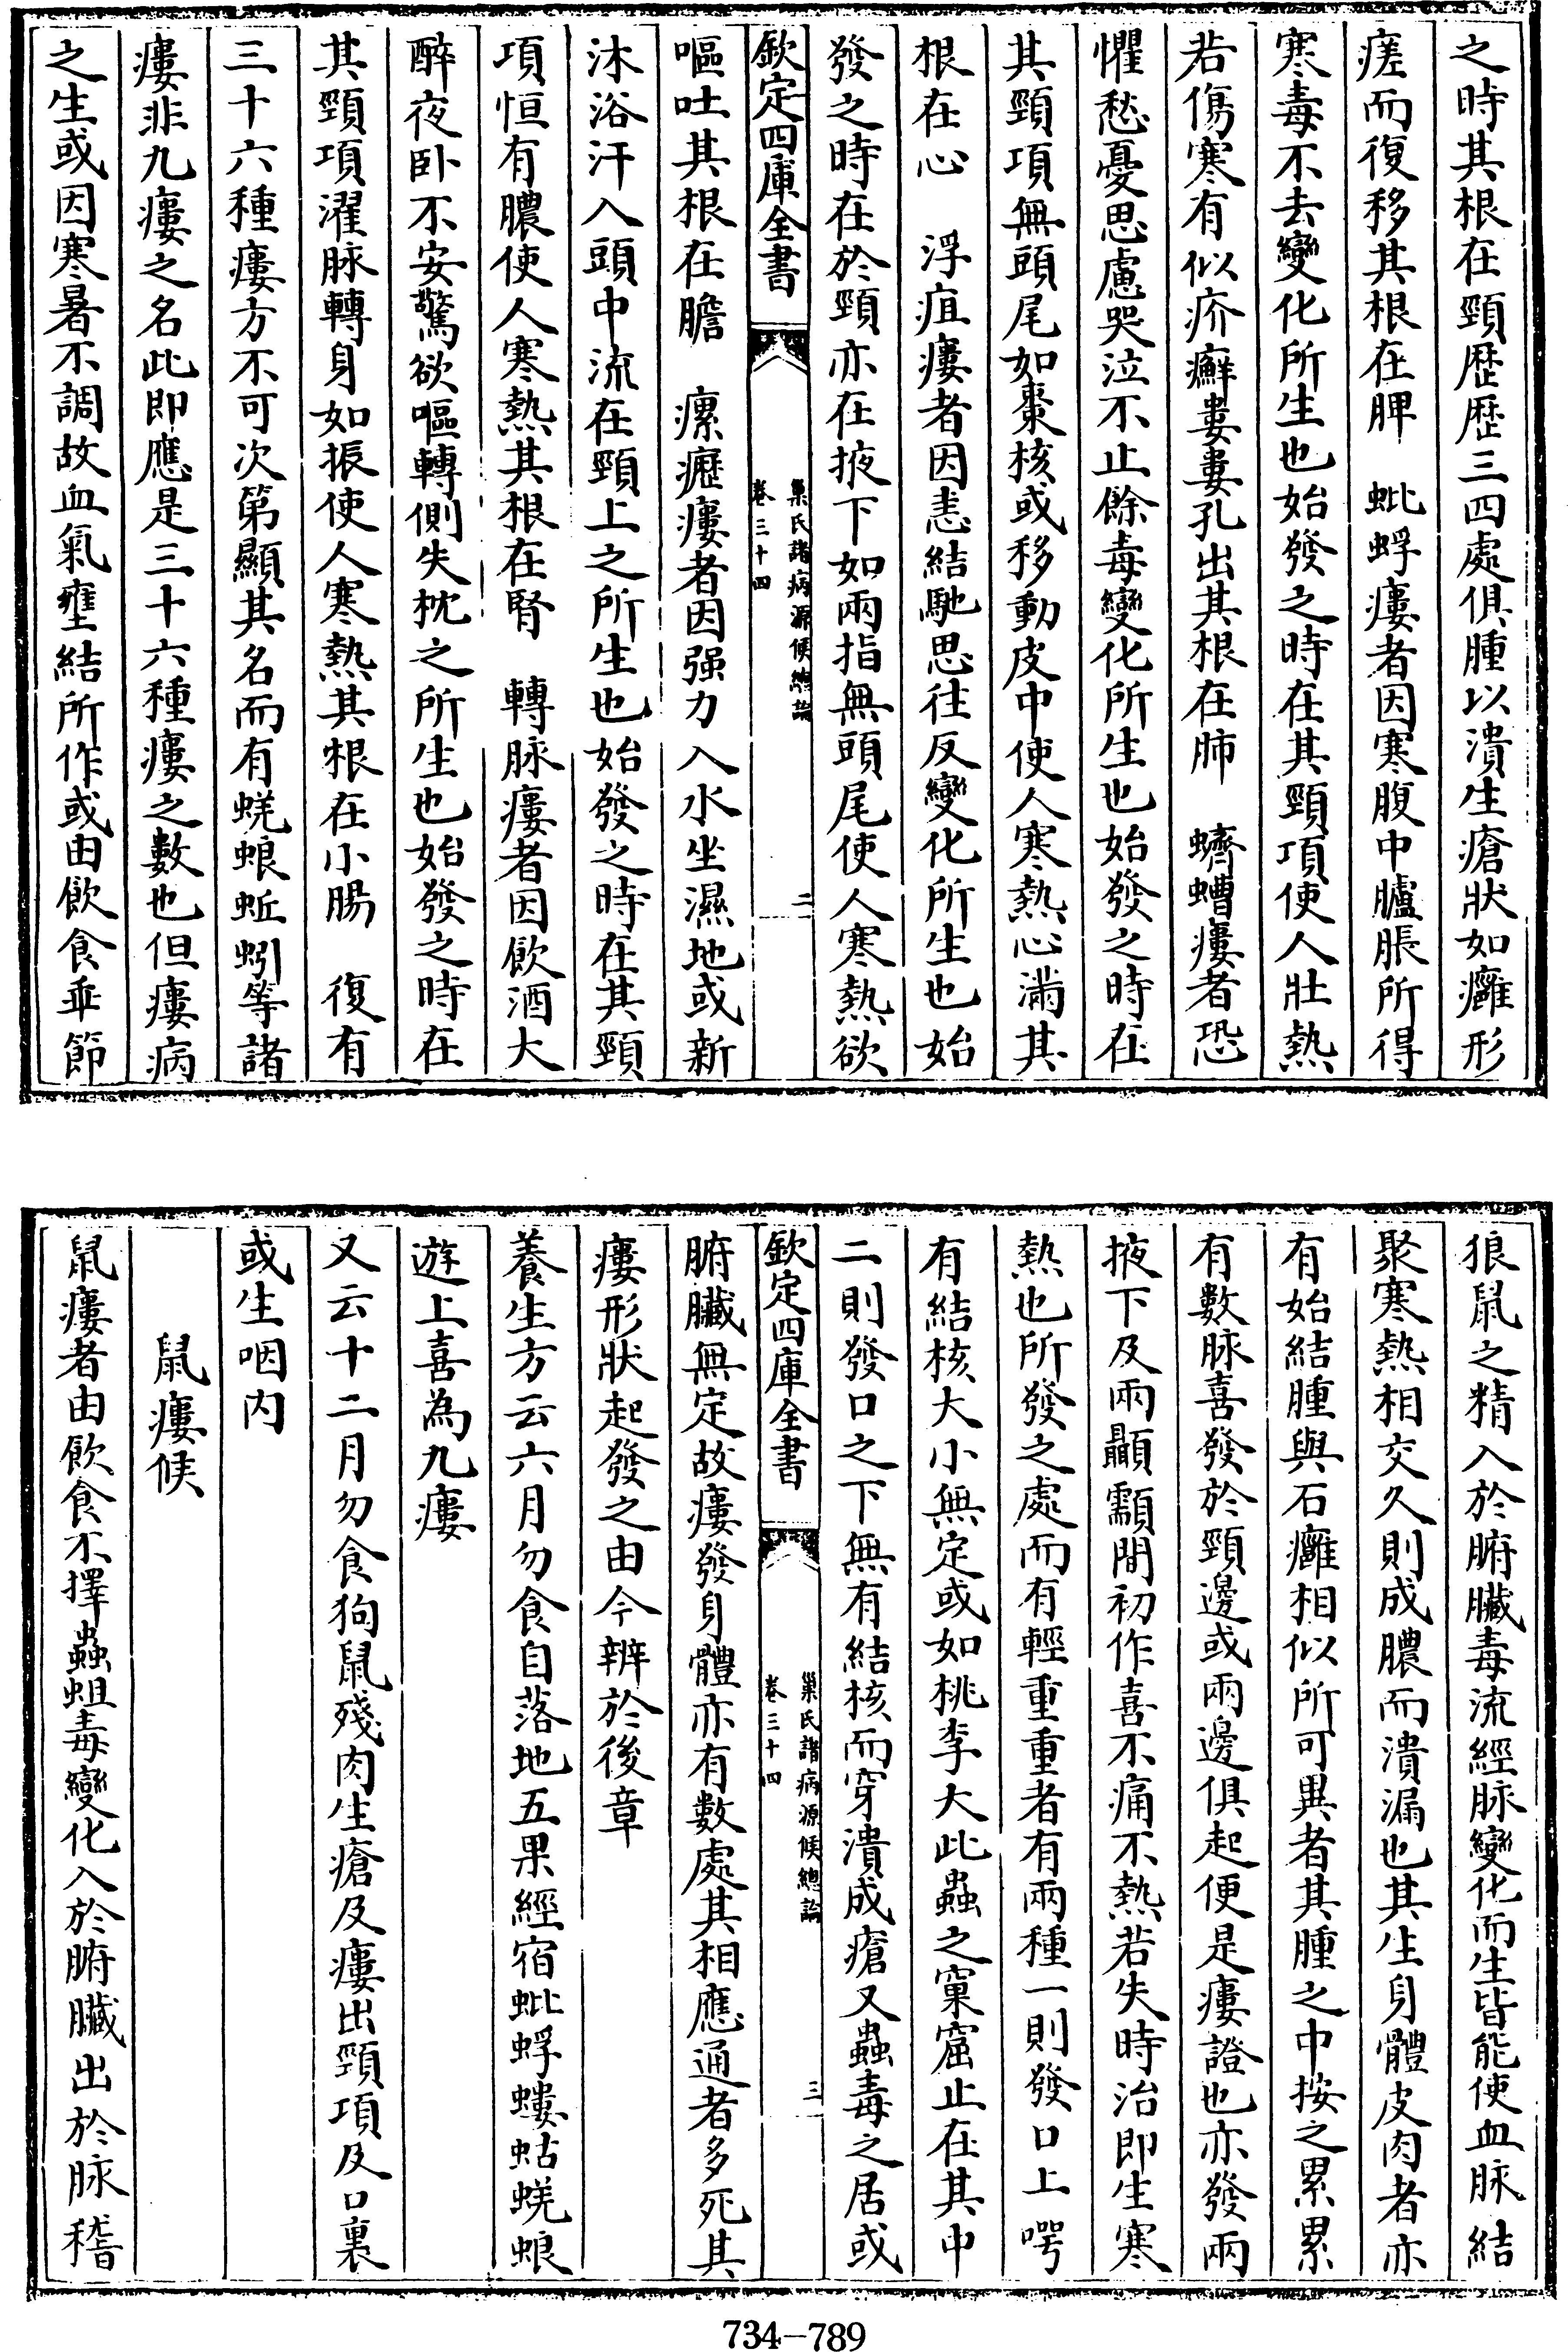 之時其根在頸歴歴三四處俱腫以潰生瘡狀如癰形
瘥而復移其根在脾　蚍蜉瘻者因寒腹中臚脹所得
寒毒不去變化所生也始發之時在其頸項使人壯熱
若傷寒有似疥癬婁婁孔出其根在肺　蠐螬瘻者恐
懼愁憂思慮哭泣不止餘毒變化所生也始發之時在
其頸項無頭尾如棗核或移動皮中使人寒熱心滿其
根在心　浮疽瘻者因恚結馳思往反變化所生也始
發之時在於頸亦在掖下如兩指無頭尾使人寒熱欲
欽定四庫全書
巢氏諸病源候總論
卷三十四
二
嘔吐其根在膽　瘰癧瘻者因强力入水坐濕地或新
沐浴汗入頭中流在頸上之所生也始發之時在其頸
項恒有膿使人寒熱其根在腎　轉脉瘻者因飲酒大
醉夜卧不安驚欲嘔轉側失枕之所生也始發之時在
其頸項濯脉轉身如振使人寒熱其根在小腸　復有
三十六種瘻方不可次第顯其名而有蜣蜋蚯蚓等諸
瘻非九瘻之名此即應是三十六種瘻之數也但瘻病
之生或因寒暑不調故血氣壅結所作或由飲食乖節
狼鼠之精入於腑臟毒流經脉變化而生皆能使血脉結
聚寒熱相交久則成膿而潰漏也其生身體皮肉者亦
有始結腫與石癰相似所可異者其腫之中按之累累
有數脉喜發於頸邊或兩邊俱起便是瘻證也亦發兩
掖下及兩顳顬間初作喜不痛不熱若失時治即生寒
熱也所發之處而有輕重重者有兩種一則發口上咢
有結核大小無定或如桃李大此蟲之窠窟止在其中
二則發口之下無有結核而穿潰成瘡又蟲毒之居或
欽定四庫全書
巢氏諸病源候總論
卷三十四
三
腑臟無定故瘻發身體亦有數處其相應通者多死其
瘻形狀起發之由今辨於後章
養生方云六月勿食自落地五果經宿蚍蜉螻蛄蜣蜋
遊上喜為九瘻
又云十二月勿食狗鼠殘肉生瘡及瘻出頸項及口裏
或生咽内
鼠瘻候
鼠瘻者由飲食不擇蟲蛆毒變化入於腑臟出於脉稽
734-789